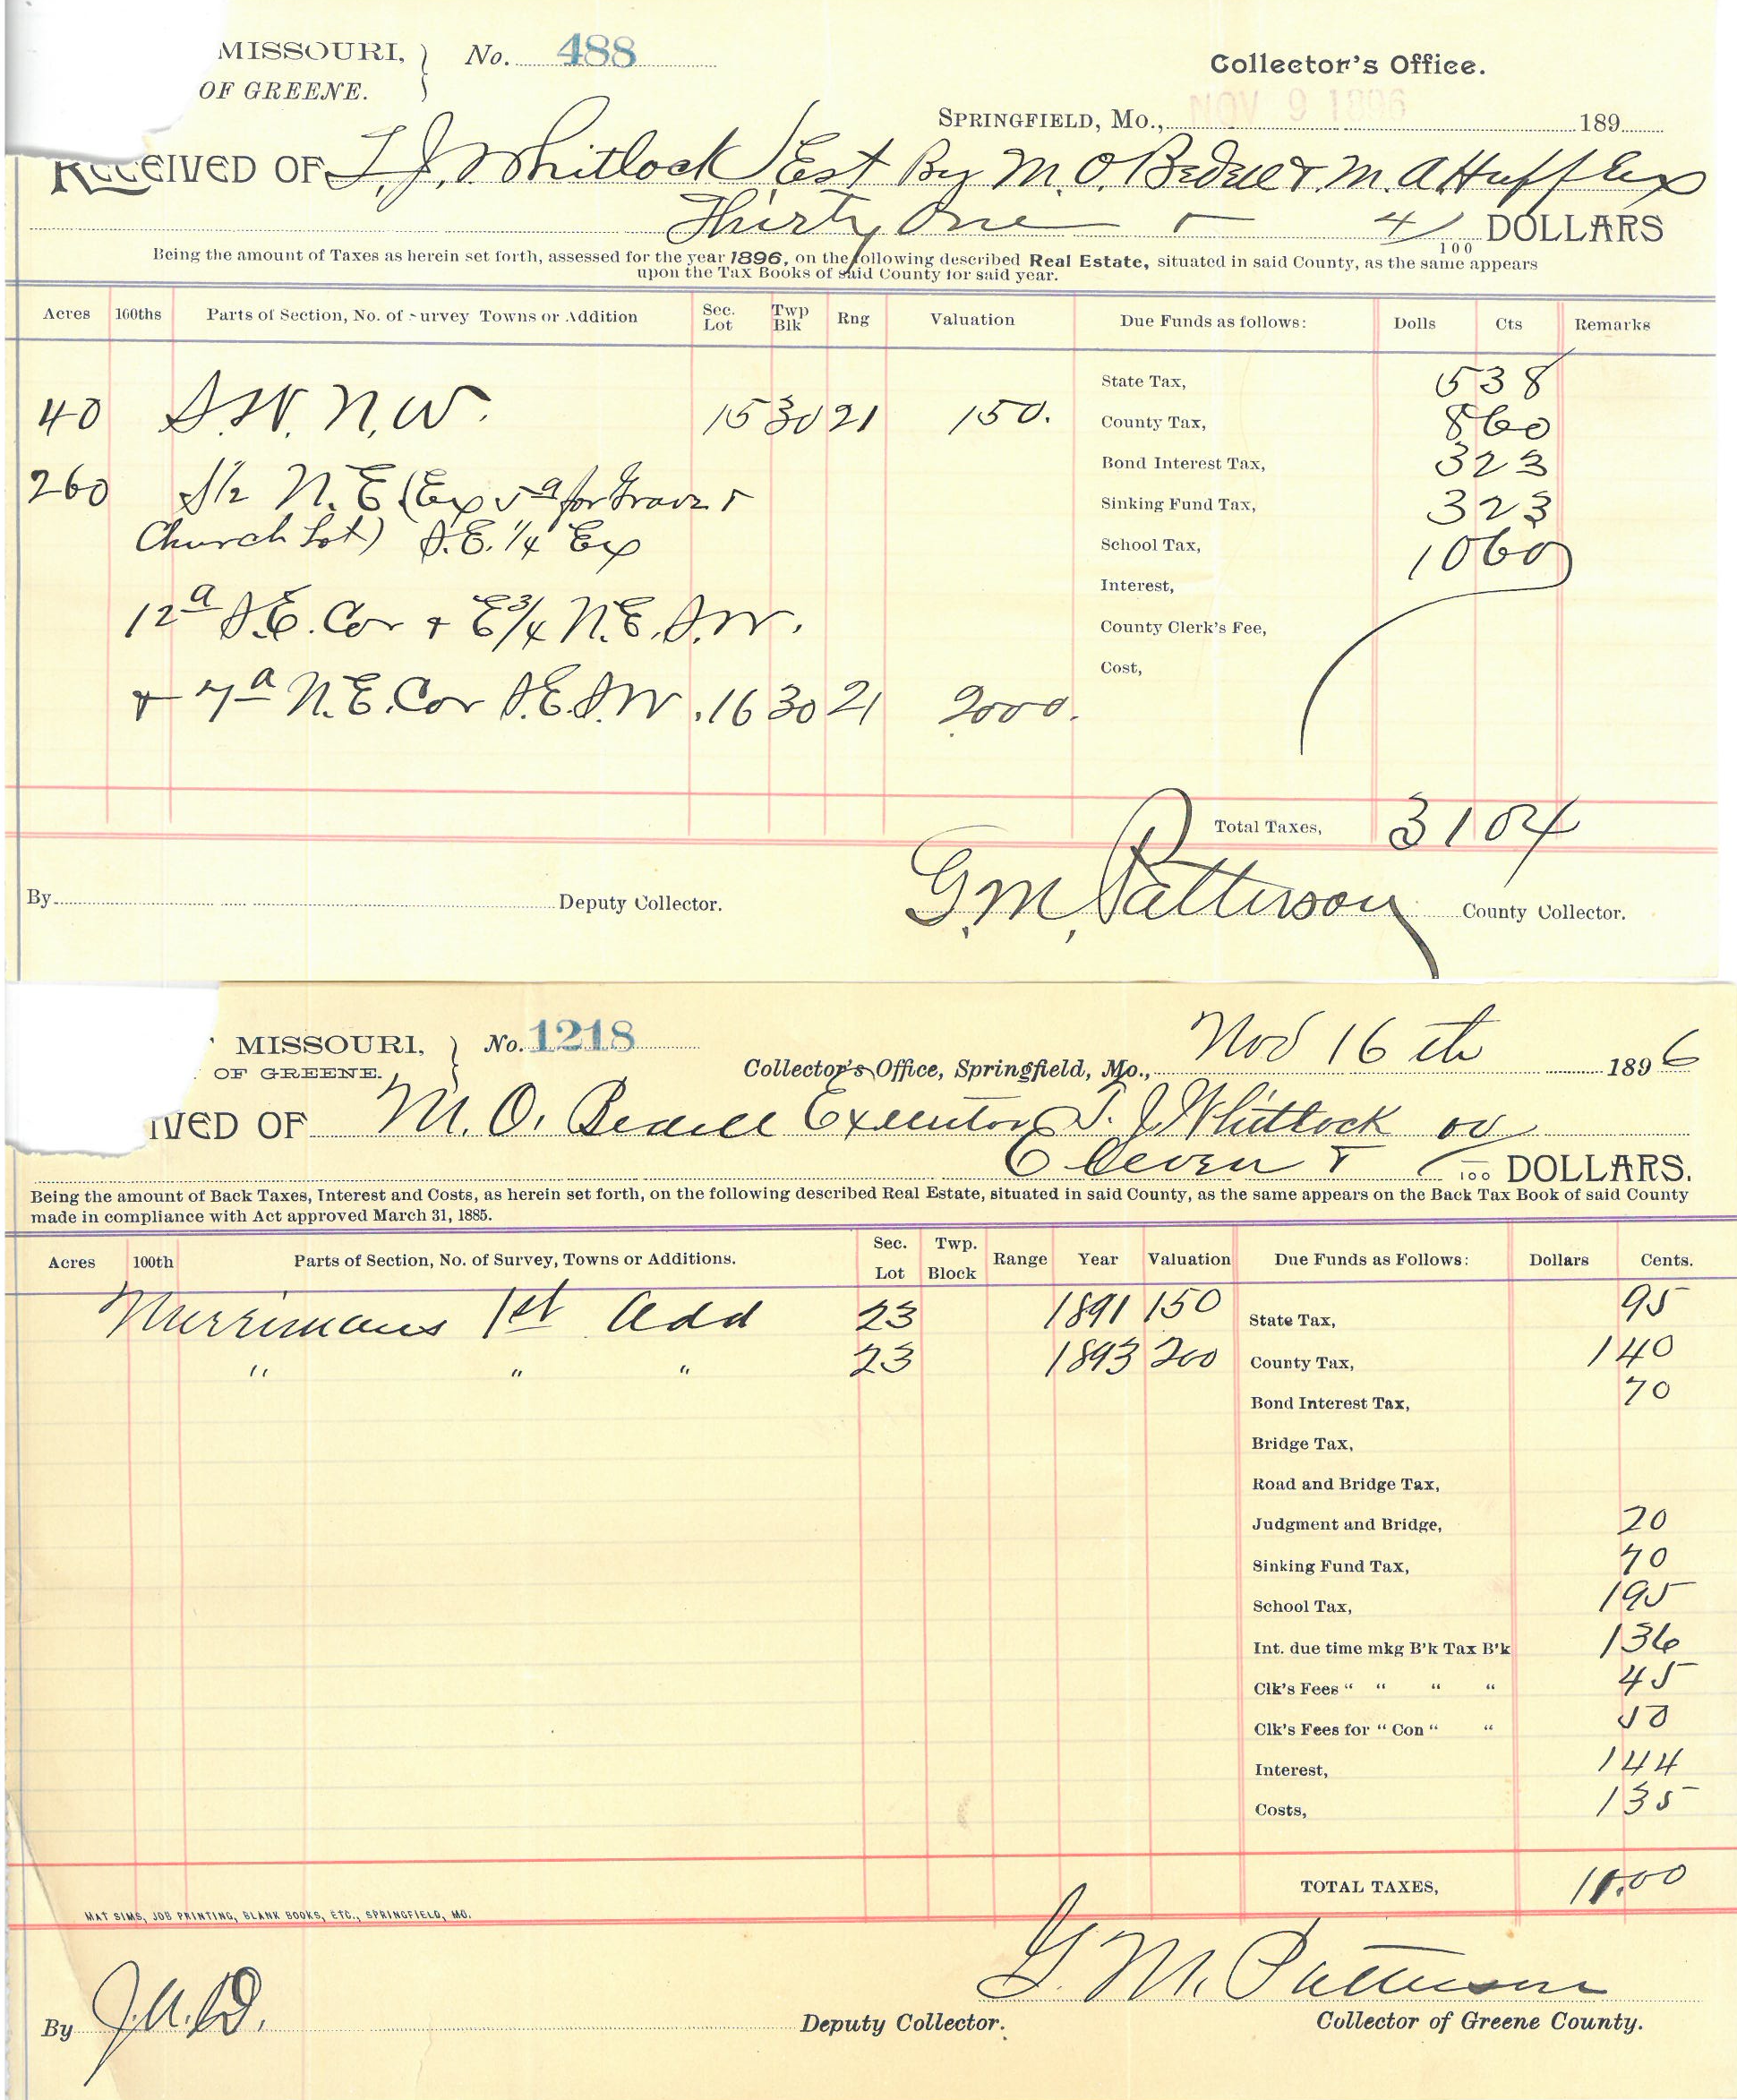 MISSOURI, } No. 488
OF GREENE.
Collector's Office.
SPRINGFIELD, MO., NOV 9 1896 189
RECEIVED OF T. J. Whitlock Est By M. O. Bedell & M. A. Huff Exs
Thirty One 4/100 DOLLARS
Being the amount of Taxes as herein set forth, assessed for the year 1896, on the following described Real Estate, situated in said County, as the same appears
upon the Tax Books of said County for said year.
Acres 100ths Parts of Section, No. of Survey Towns or Addition Sec. Lot Twp Blk Rng Valuation Due Funds as follows: Dolls Cts Remarks
State Tax, 5 38
40 S.W. N.W. 15 30 21 150. County Tax, 8 60
Bond Interest Tax, 3 23
260 S 1/2 N.E (Exp 5 a for Grave & Sinking Fund Tax, 3 23
Church Lot) S.E. 1/4 Ex School Tax, 10 60
Interest,
12 a S.E. Cor + E 3/4 N.E. S.W. County Clerk's Fee,
Cost,
+ 7 a N.E. Cor S.E. S.W. 16 30 21 2000.
Total Taxes, 31 04
By Deputy Collector. G. M. Patterson County Collector.
MISSOURI, } No. 1218
OF GREENE.
Collector's Office, Springfield, Mo., Nov 16 th 1896
IVED OF M. O. Bedell Executor T. J. Whitlock
Eleven & /100 DOLLARS.
Being the amount of Back Taxes, Interest and Costs, as herein set forth, on the following described Real Estate, situated in said County, as the same appears on the Back Tax Book of said County
made in compliance with Act approved March 31, 1885.
Acres 100th Parts of Section, No. of Survey, Towns or Additions. Sec. Lot Twp. Block Range Year Valuation Due Funds as Follows: Dollars Cents.
Merrimans 1st Add 23 1891 150 State Tax, 95
" " " 23 1893 200 County Tax, 1 40
Bond Interest Tax, 70
Bridge Tax,
Road and Bridge Tax,
Judgment and Bridge, 20
Sinking Fund Tax, 70
School Tax, 1 95
Int. due time mkg B'k Tax B'k 1 36
Clk's Fees " " " " 45
Clk's Fees for " Con " " 50
Interest, 1 44
Costs, 1 35
TOTAL TAXES, 11.00
MAT SIMS, JOB PRINTING, BLANK BOOKS, ETC., SPRINGFIELD, MO.
By Deputy Collector. G. M. Patterson Collector of Greene County.